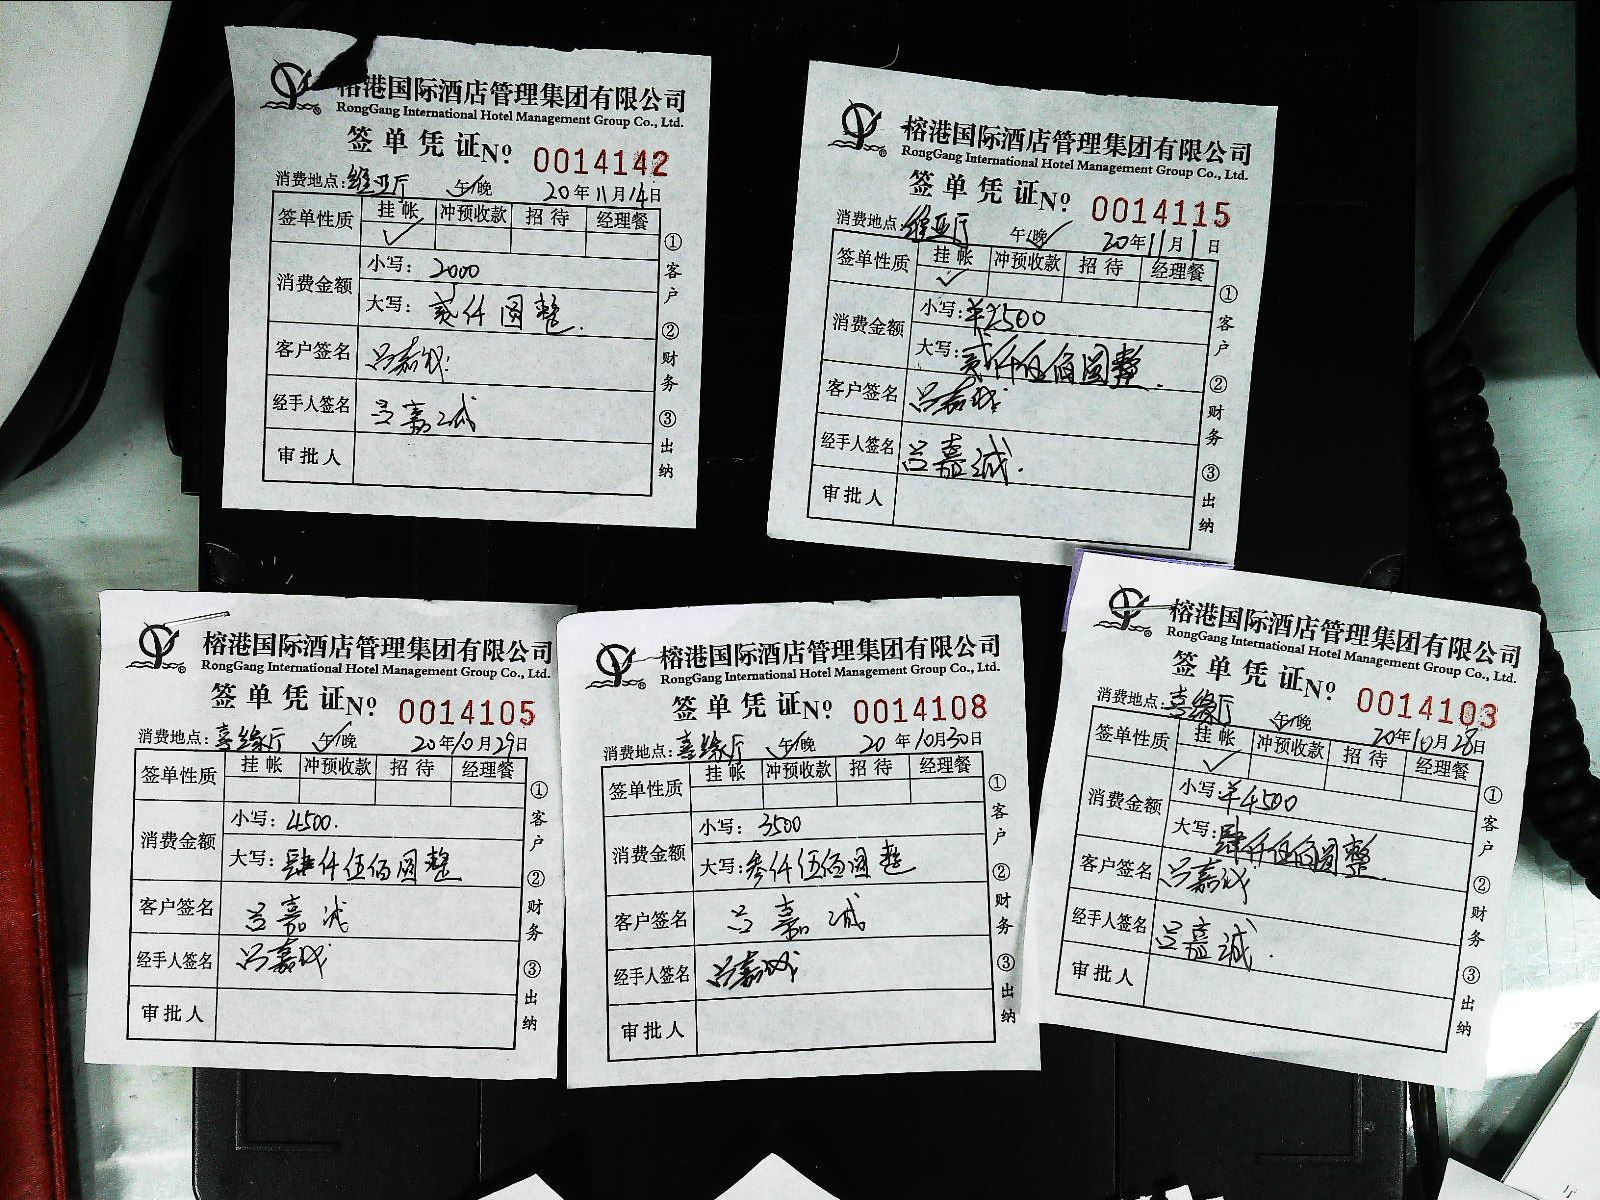 榕港国际酒店管理集团有限公司
RongGang International Hotel Management Group Co., Ltd.
签单凭证 Nº 0014142
消费地点:维亚厅 午/晚 20年11月14日
签单性质 挂帐 冲预收款 招待 经理餐
消费金额 小写: 2000
大写: 贰仟圆整.
客户签名 吕嘉诚
经手人签名 吕嘉诚
审批人
①客户 ②财务 ③出纳
榕港国际酒店管理集团有限公司
RongGang International Hotel Management Group Co., Ltd.
签单凭证 Nº 0014115
消费地点:维亚厅 午/晚 20年11月1日
签单性质 挂帐 冲预收款 招待 经理餐
消费金额 小写:¥2500
大写:贰仟伍佰圆整.
客户签名 吕嘉诚
经手人签名 吕嘉诚.
审批人
①客户 ②财务 ③出纳
榕港国际酒店管理集团有限公司
RongGang International Hotel Management Group Co., Ltd.
签单凭证 Nº 0014105
消费地点:喜缘厅 午/晚 20年10月29日
签单性质 挂帐 冲预收款 招待 经理餐
消费金额 小写: 4500.
大写: 肆仟伍佰圆整
客户签名 吕嘉诚
经手人签名 吕嘉诚
审批人
①客户 ②财务 ③出纳
榕港国际酒店管理集团有限公司
RongGang International Hotel Management Group Co., Ltd.
签单凭证 Nº 0014108
消费地点:喜缘厅 午/晚 20年10月30日
签单性质 挂帐 冲预收款 招待 经理餐
消费金额 小写: 3500
大写:叁仟伍佰圆整
客户签名 吕嘉诚
经手人签名 吕嘉诚
审批人
①客户 ②财务 ③出纳
榕港国际酒店管理集团有限公司
RongGang International Hotel Management Group Co., Ltd.
签单凭证 Nº 0014103
消费地点:喜缘厅 午/晚 20年10月28日
签单性质 挂帐 冲预收款 招待 经理餐
消费金额 小写:¥4500
大写:肆仟伍佰圆整.
客户签名 吕嘉诚
经手人签名 吕嘉诚.
审批人
①客户 ②财务 ③出纳